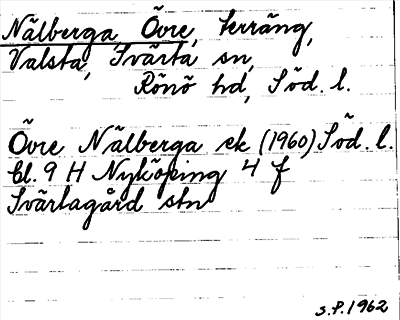 Nälberga Övre, terräng,
Valsta, Svärta sn,
Rönö hd, Söd. l.
Övre Nälberga ek (1960) Söd. l.
bl. 9 H Nyköping 4 f
Svärtagård stn
S.P. 1962